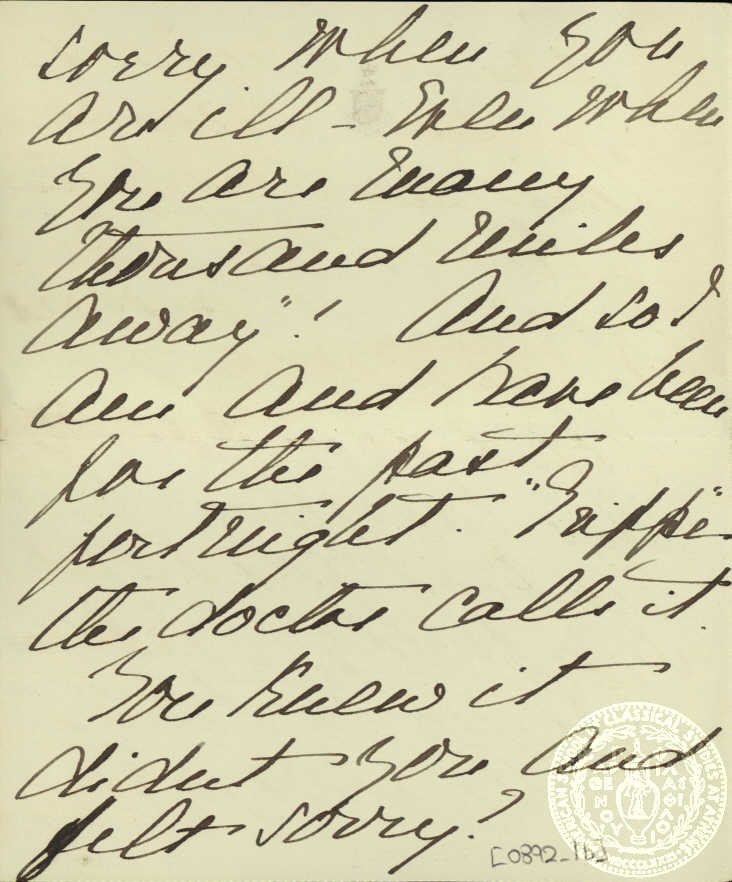 sorry when you
are ill – Even when
you are many
thousand miles
away"! And so I
am and have been
for the past
fortnight. "Grippe"
the doctor calls it.
You knew it
didnt you and
felt sorry?
[0892_1b]
AMERICAN SCHOOL OF CLASSICAL STUDIES AT ATHENS
MDCCCLXXXI